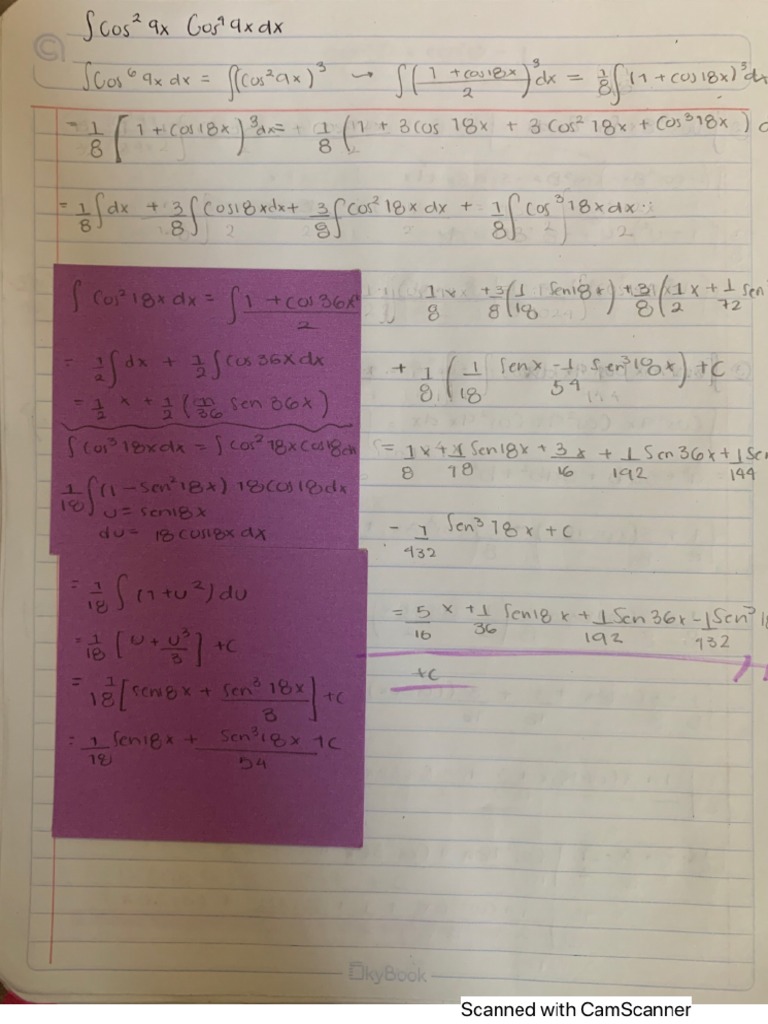 ∫cos² 9x Cos⁴ 9x dx
∫Cos⁶ 9x dx = ∫(cos² 9x)³ → ∫(1 + cos 18x / 2)³ dx = 1/8 ∫(1 + cos 18x)³ dx
= 1/8 [1 + cos 18x)³ dx = 1/8 (1 + 3 cos 18x + 3 Cos² 18x + Cos³ 18x)
= 1/8 ∫dx + 3/8 ∫cos 18x dx + 3/8 ∫cos² 18x dx + 1/8 ∫cos³ 18x dx
∫Cos² 18x dx = ∫ 1 + cos 36x / 2
= 1/2 ∫dx + 1/2 ∫cos 36x dx
= 1/2 x + 1/2 (1/36 sen 36x)
∫cos³ 18x dx = ∫cos² 18x cos 18x
1/18 ∫(1 - sen² 18x) 18 cos 18 dx
u = sen 18x
du = 18 cos 18x dx
= 1/18 ∫(1 + u²) du
= 1/18 [u + u³/3] + c
= 1/18 [sen 18x + sen³ 18x / 3] + c
= 1/18 sen 18x + sen³ 18x / 54 + c
1/8 x + 3/8 (1/18 sen 18x) + 3/8 (1/2 x + 1/72 sen
+ 1/8 (1/18 sen x - 1/54 sen³ 18x) + c
= 1/8 x + 1/18 sen 18x + 3/16 x + 1/192 sen 36x + 1/144 se
- 1/432 sen³ 18x + c
= 5/16 x + 1/36 sen 18x + 1/192 sen 36x - 1/432 sen³ 18
+ c
SkyBook
Scanned with CamScanner